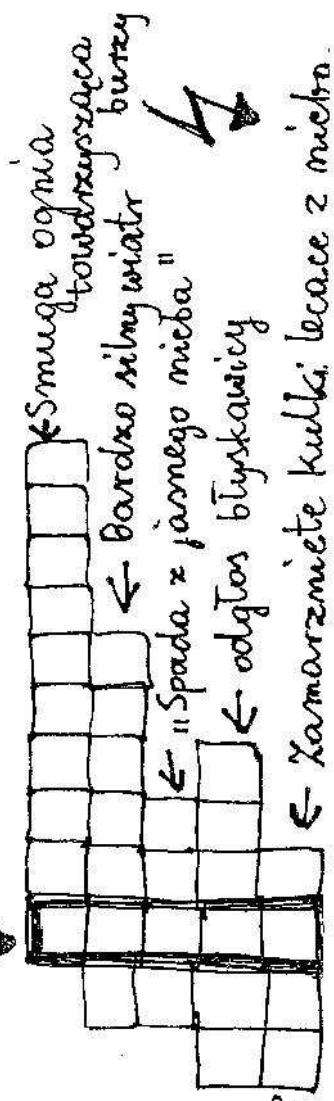 Smuga ognia
towarzysząca
burzy
Bardzo silny wiatr
"Spada z jasnego nieba"
odgłos błyskawicy
Zamarznięte kulki lecące z nieba.